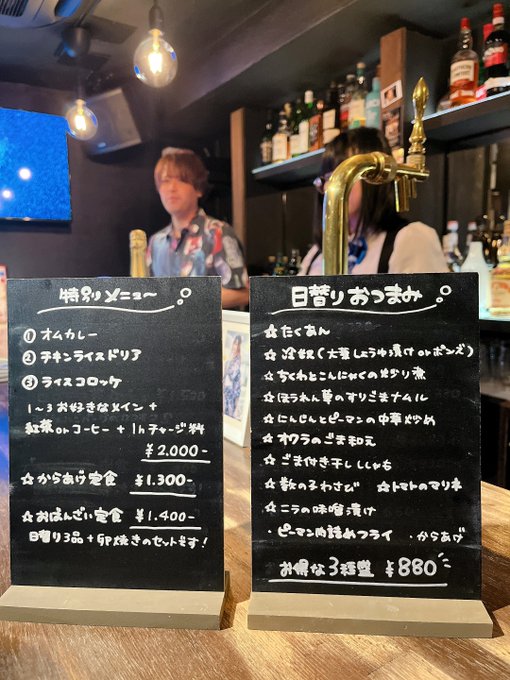 特別メニュー
① オムカレー
② チキンライスドリア
③ ライスコロッケ
1〜3お好きなメイン +
紅茶orコーヒー + 1hチャージ料
¥2.000-
☆からあげ定食 ¥1.300-
☆おばんざい定食 ¥1.400-
日替り3品+卵焼きのセットです!
日替りおつまみ
☆たくあん
☆冷奴(大葉しょうゆ漬けorポンズ)
☆ちくわとこんにゃくの炒り煮
☆ほうれん草のすりごまナムル
☆にんじんとピーマンの中華炒め
☆オクラのごま和え
☆ごま付き干ししゃも
☆数の子わさび ☆トマトのマリネ
☆ニラの味噌漬け
・ピーマン肉詰めフライ ・からあげ
お得な3種盛 ¥880